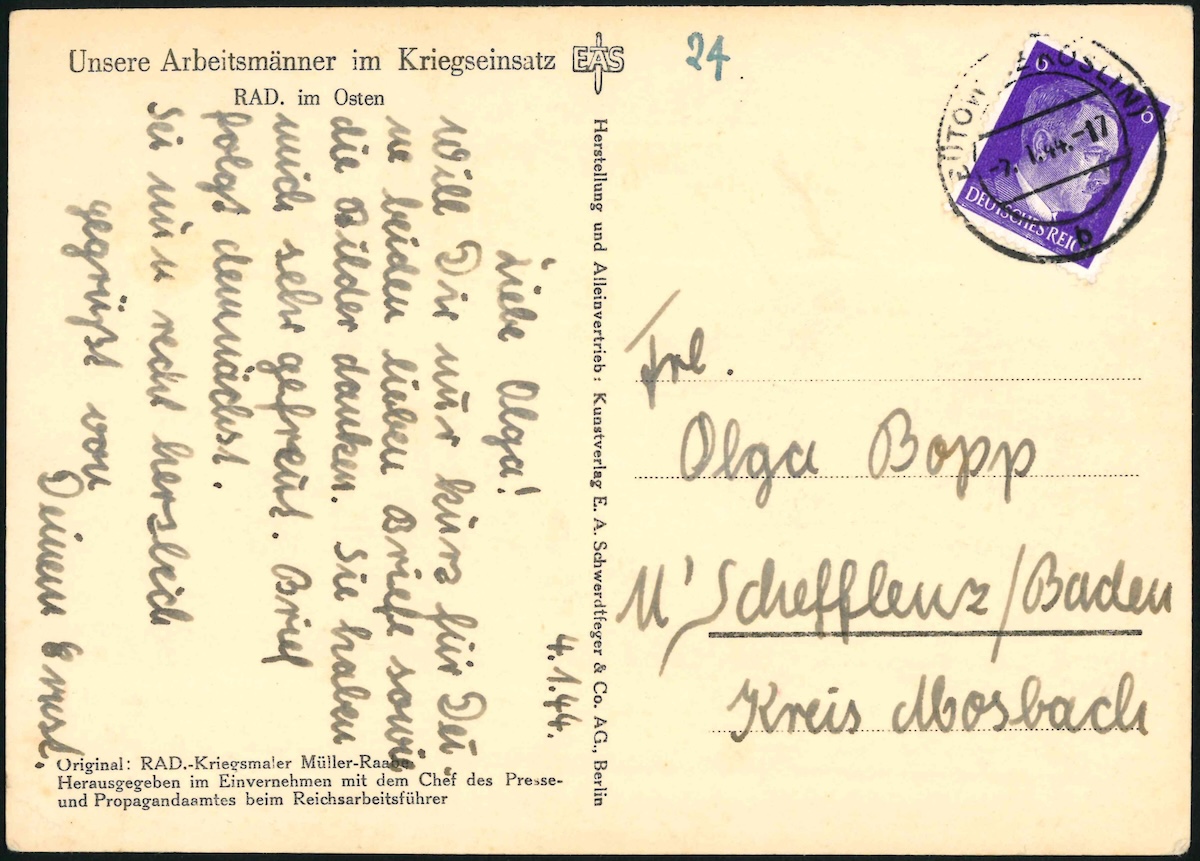 Unsere Arbeitsmänner im Kriegseinsatz
EAS
RAD. im Osten
24
4.1.44.
Liebe Olga!
Will Dir nur kurz für Dei-
ne beiden lieben Briefe sowie
die Bilder danken. Sie haben
mich sehr gefreut. Brief
folgt demnächst.
Sei nun recht herzlich
gegrüßt von
Deinem Ernst.
Original: RAD.-Kriegsmaler Müller-Raabe
Herausgegeben im Einvernehmen mit dem Chef des Presse-
und Propagandaamtes beim Reichsarbeitsführer
Herstellung und Alleinvertrieb: Kunstverlag E. A. Schwerdtfeger & Co. AG., Berlin
6 6
DEUTSCHES REICH
BÜTOW KÖSLIN)
1.44.-17
b
Frl.
Olga Bopp
U' Schefflenz/Baden
Kreis Mosbach